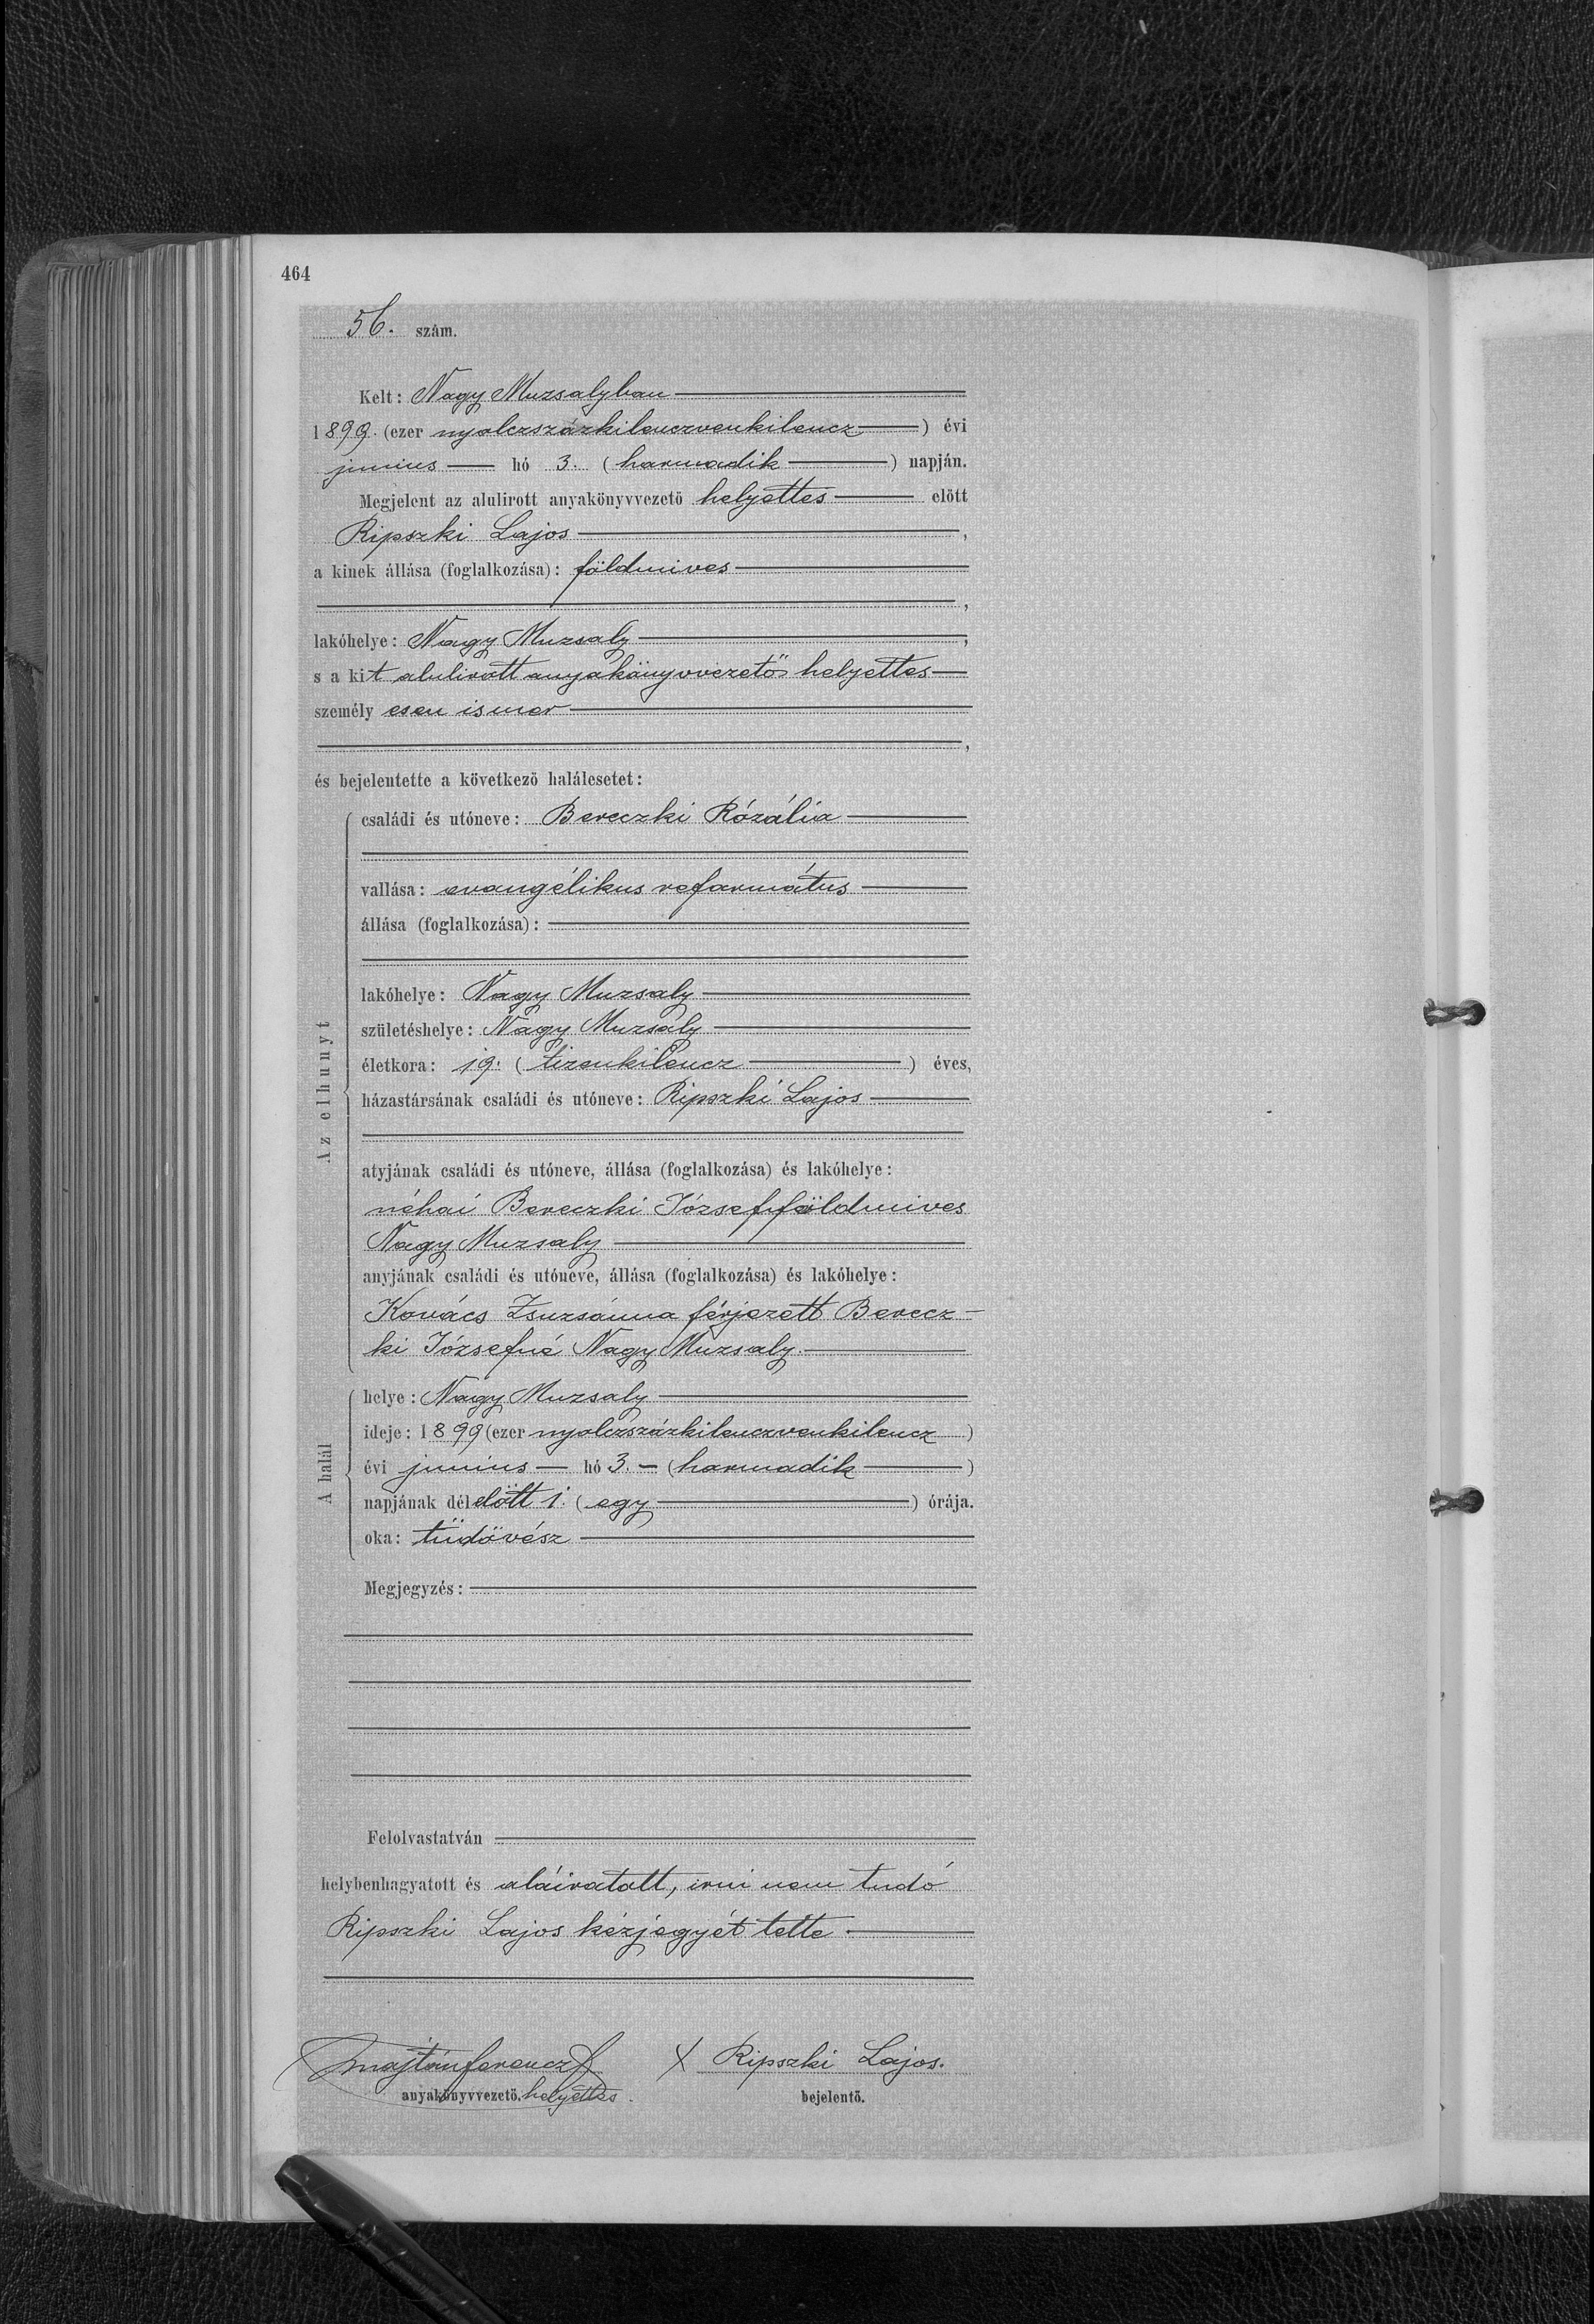 464
56. szám.
Kelt: Nagy Muzsalyban
1899. (ezer nyolczszázkilenczvenkilencz) évi
junius hó 3. (harmadik) napján.
Megjelent az alulirott anyakönyvvezető helyettes előtt
Ripszki Lajos,
a kinek állása (foglalkozása): földmives
,
lakóhelye: Nagy Muzsaly,
s a kit alulirott anyakönyvvezető helyettes
személyesen ismer
,
és bejelentette a következő halálesetet:
Az elhunyt
családi és utóneve: Bereczki Rózália
vallása: evangélikus református
állása (foglalkozása):
lakóhelye: Nagy Muzsaly
születéshelye: Nagy Muzsaly
életkora: 19. (tizenkilencz) éves,
házastársának családi és utóneve: Ripszki Lajos
atyjának családi és utóneve, állása (foglalkozása) és lakóhelye:
néhai Bereczki József földmives
Nagy Muzsaly
anyjának családi és utóneve, állása (foglalkozása) és lakóhelye:
Kovács Zsuzsánna férjezett Berecz-
ki Józsefné Nagy Muzsaly.
A halál
helye: Nagy Muzsaly
ideje: 1899 (ezer nyolczszázkilenczvenkilencz)
évi junius hó 3. (harmadik)
napjának délelőtt 1. (egy) órája.
oka: tüdővész
Megjegyzés:
Felolvastatván
helybenhagyatott és aláiratott, irni nem tudó
Ripszki Lajos kézjegyét tette
Majtán Ferencz X Ripszki Lajos.
anyakönyvvezető. helyettes. bejelentő.